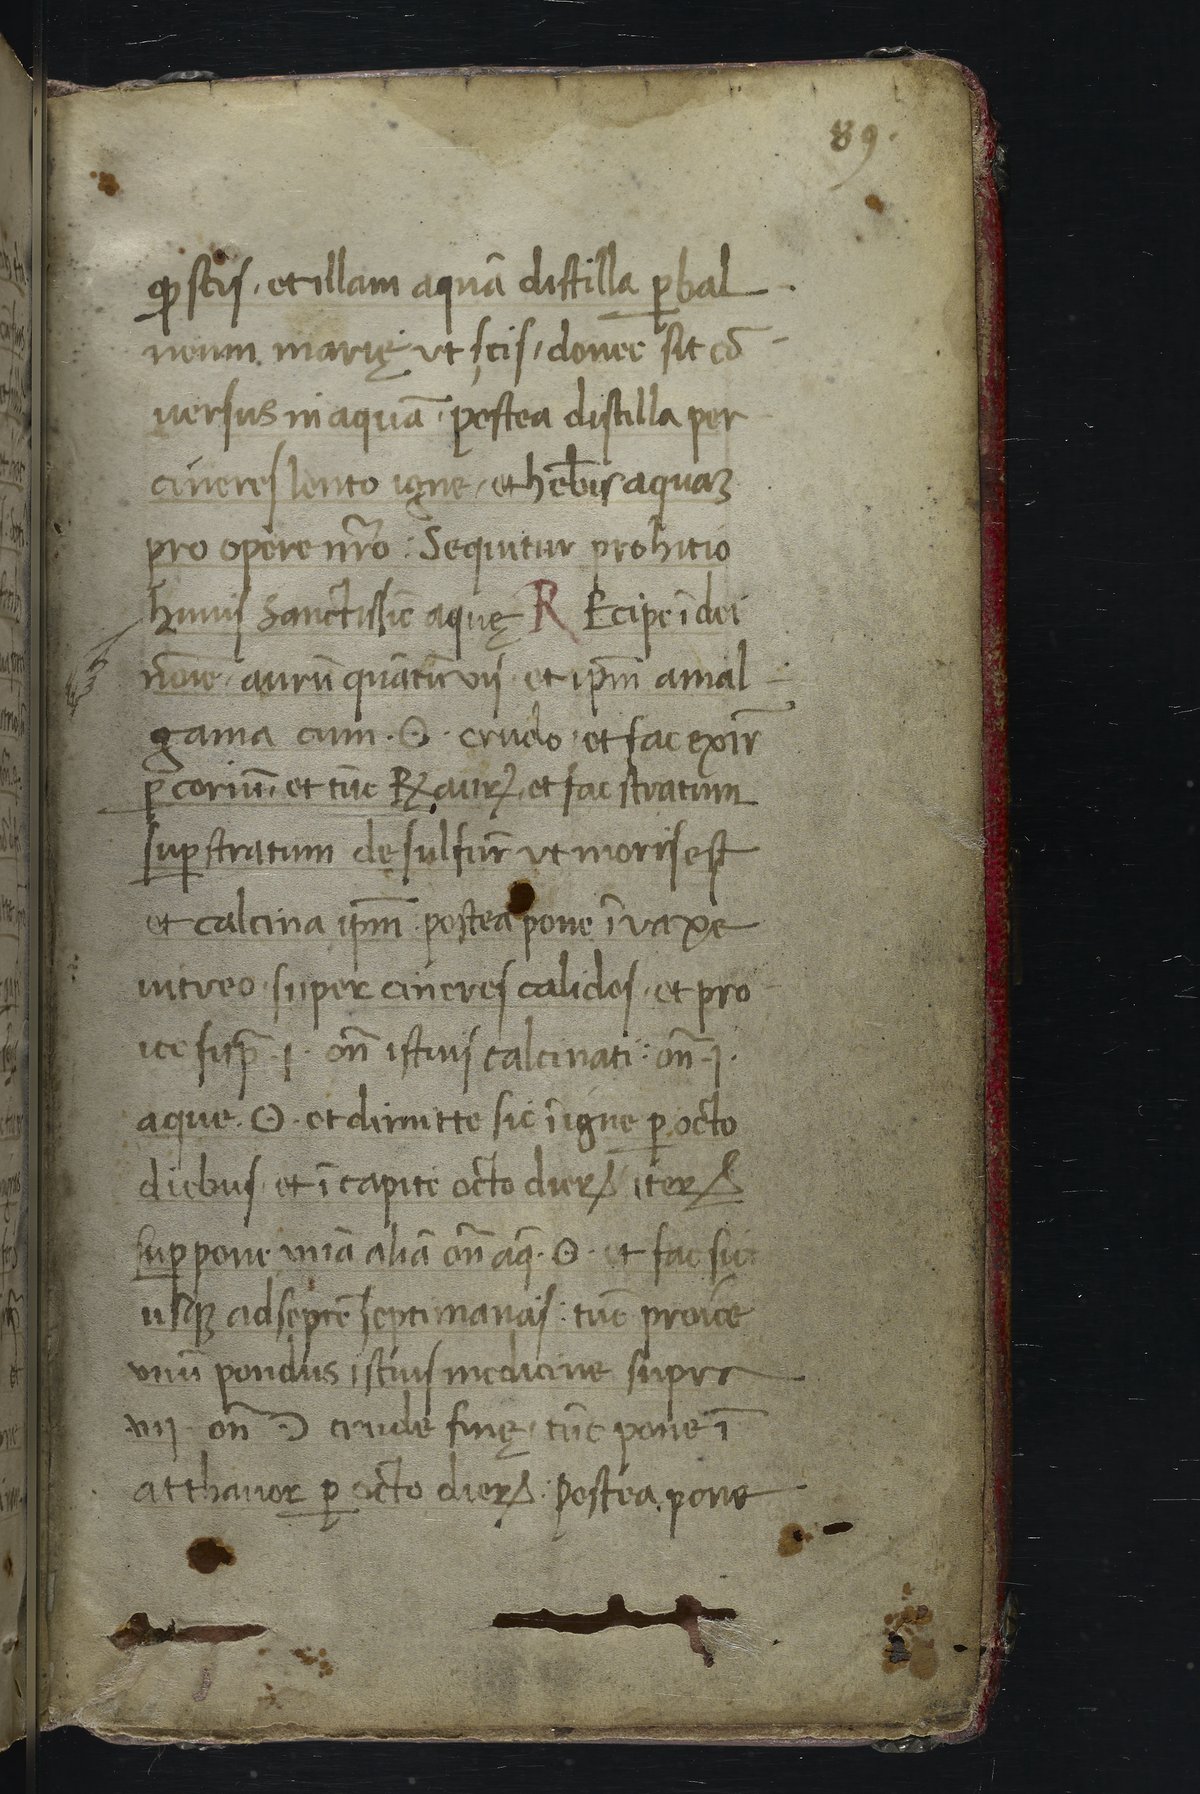 89.
qp scis, et illam aquā distilla ꝑ bal
neum marię vt scis, donec sit cō
uersus in aquā. postea distilla per
cineres lento igne, et hēbis aquaȝ
pro opere nr̄o : Sequitur prohitio
huius Sanctissīe aquę R Ecipe ī dei
nōīe, aurū quātū vis et ip̄m amal
gama cum . ʘ . crudo, et fac exir̄
ꝑ coriū, et tūc ℞ aur̄, et fac stratum
suꝑ stratum de sulfur̄ vt moris est
et calcina ip̄m . postea pone ī vaxe
uitreo super cineres calidos, et pro
ice sup̄ . j . on̄ istius calcinati : on̄ . j .
aque . ʘ . et dimitte sic ī igne ꝑ octo
diebus, et ī capite octo dierꝝ iterꝝ
suꝑpone uniā aliā on̄ aq̄ . ʘ . et fac sic
usqȝ ad septē septimanas : tūc proice
unū pondus istius medicine supra
vij . on̄ ☽ crude finę, tūc pone ī
atthanor ꝑ octo dierꝝ . postea pone